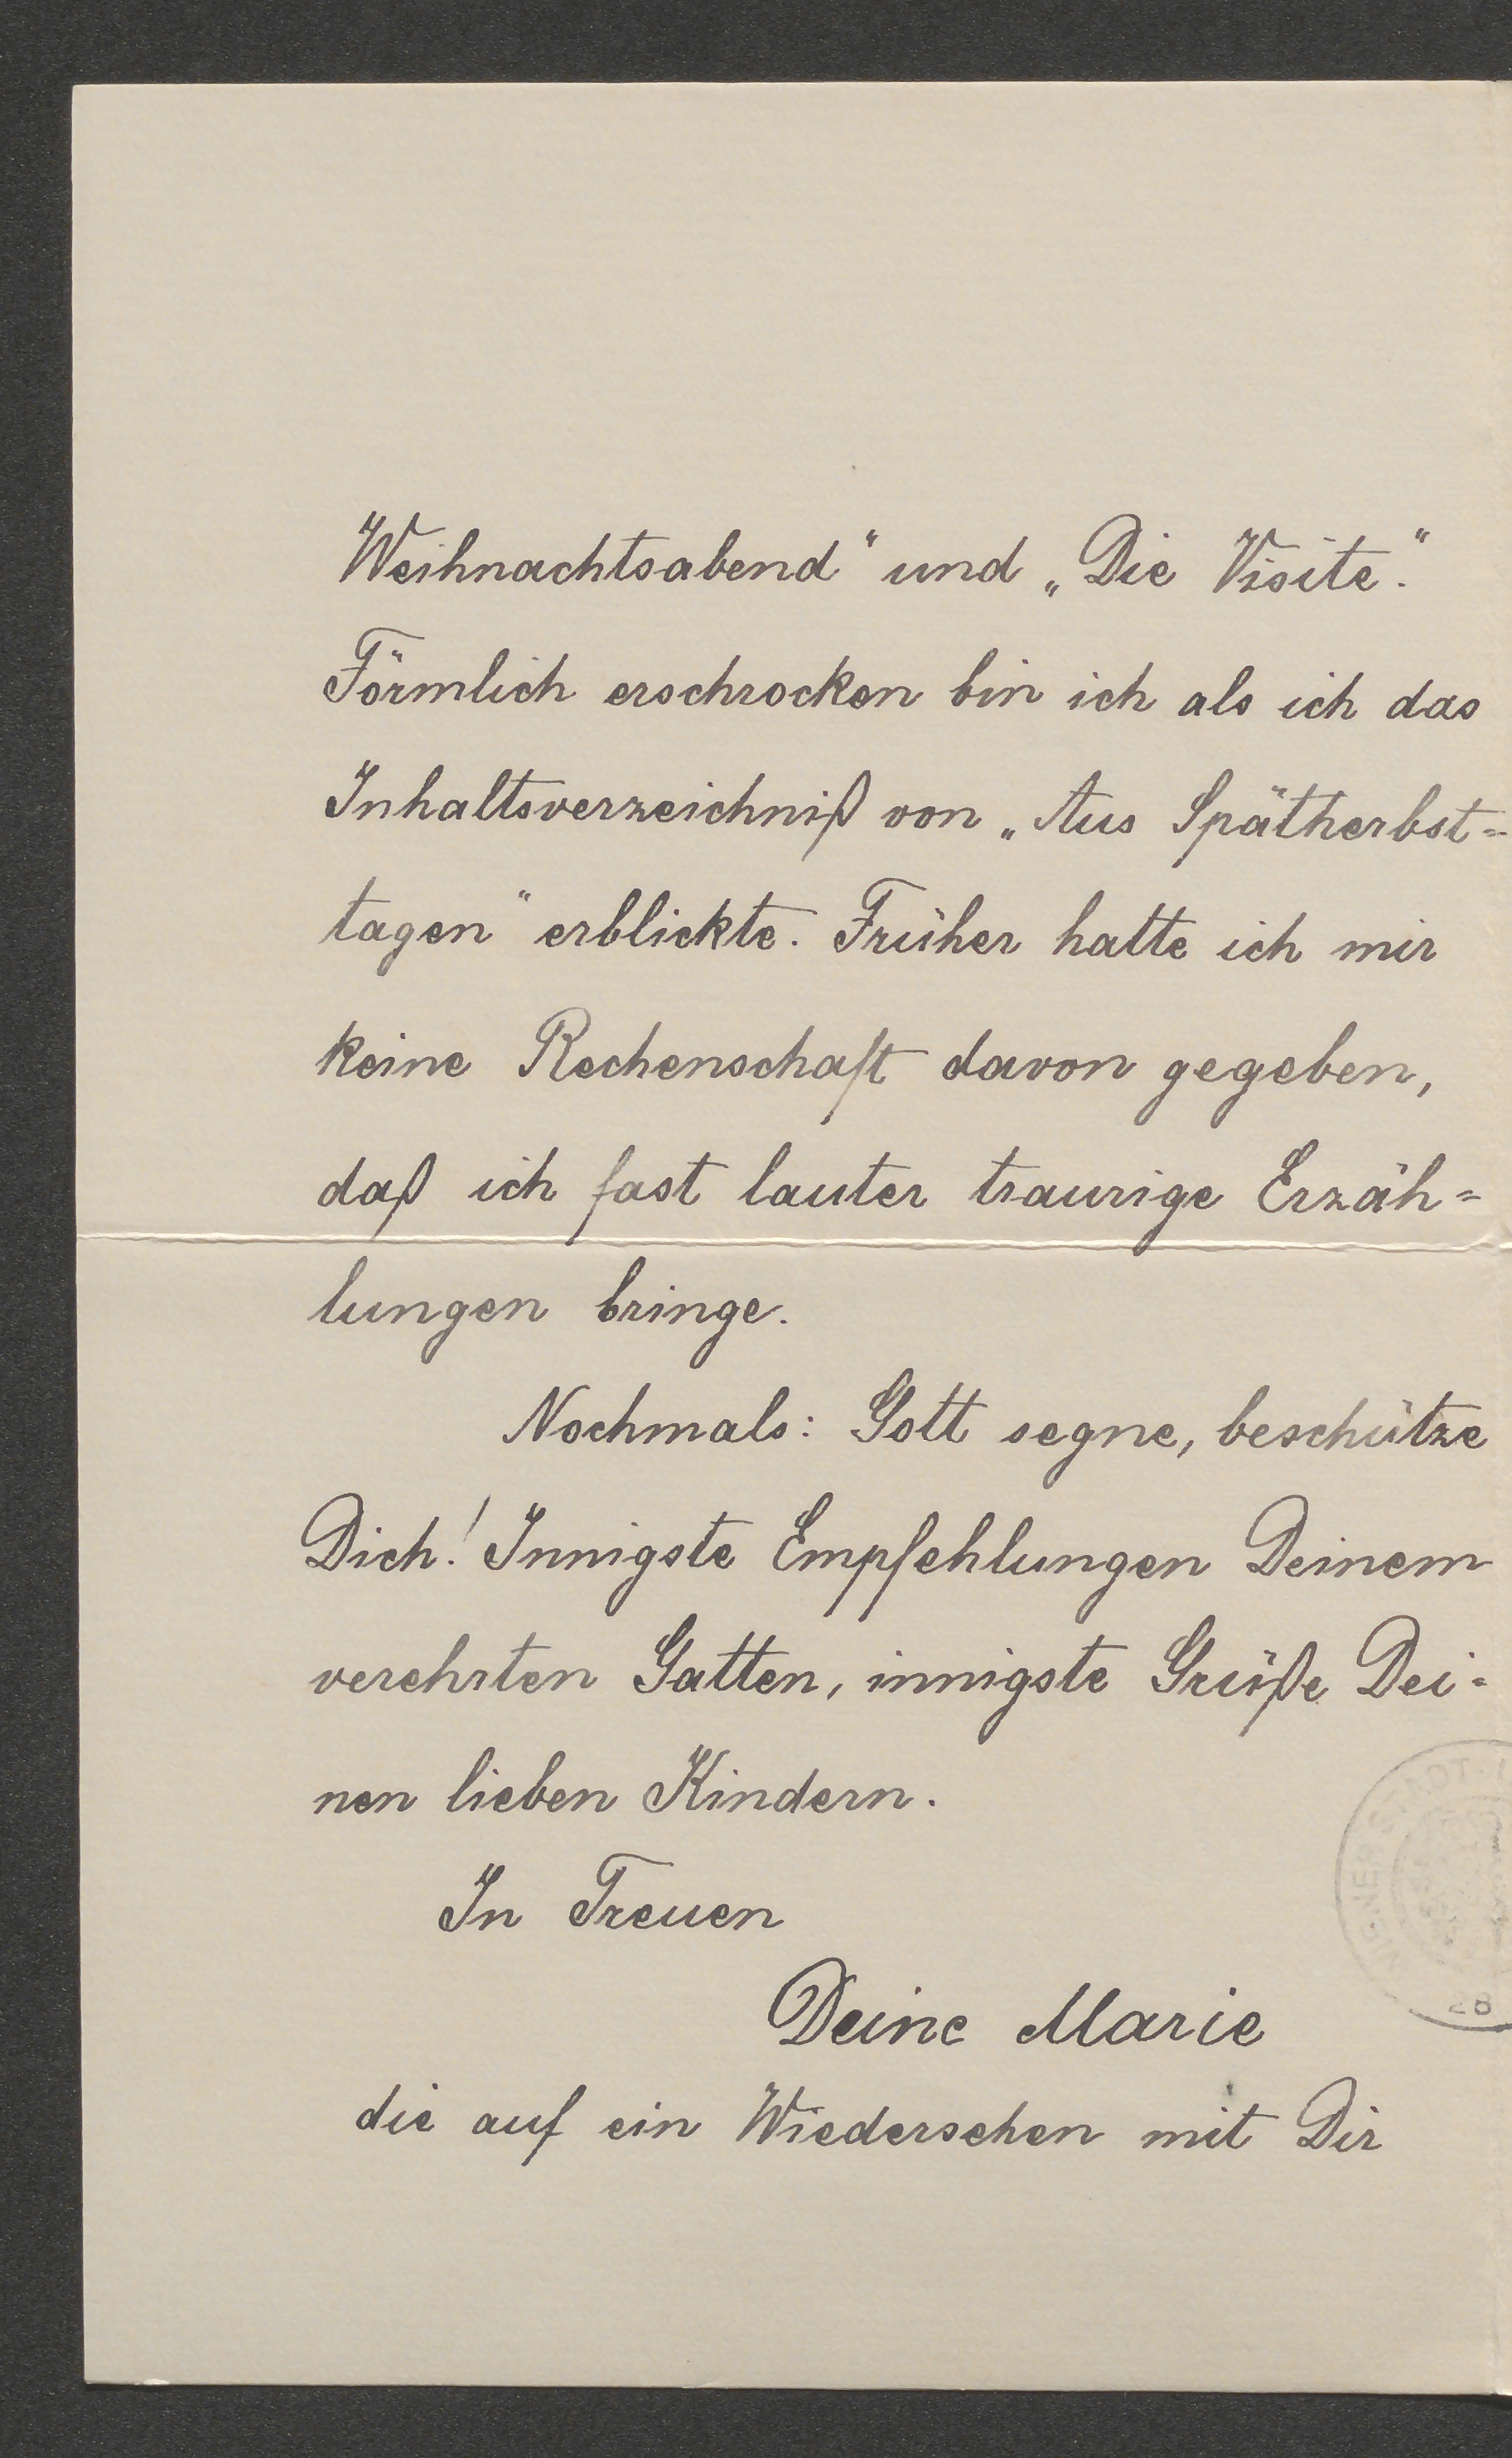 Weihnachtsabend" und „Die Visite."
Förmlich erschrocken bin ich als ich das
Inhaltsverzeichniß von „Aus Spätherbst=
tagen" erblickte. Früher hatte ich mir
keine Rechenschaft davon gegeben,
daß ich fast lauter traurige Erzäh=
lungen bringe.
Nochmals: Gott segne, beschütze
Dich! Innigste Empfehlungen Deinem
verehrten Gatten, innigste Grüße Dei=
nen lieben Kindern.
In Treuen
Deine Marie
die auf ein Wiedersehen mit Dir
28